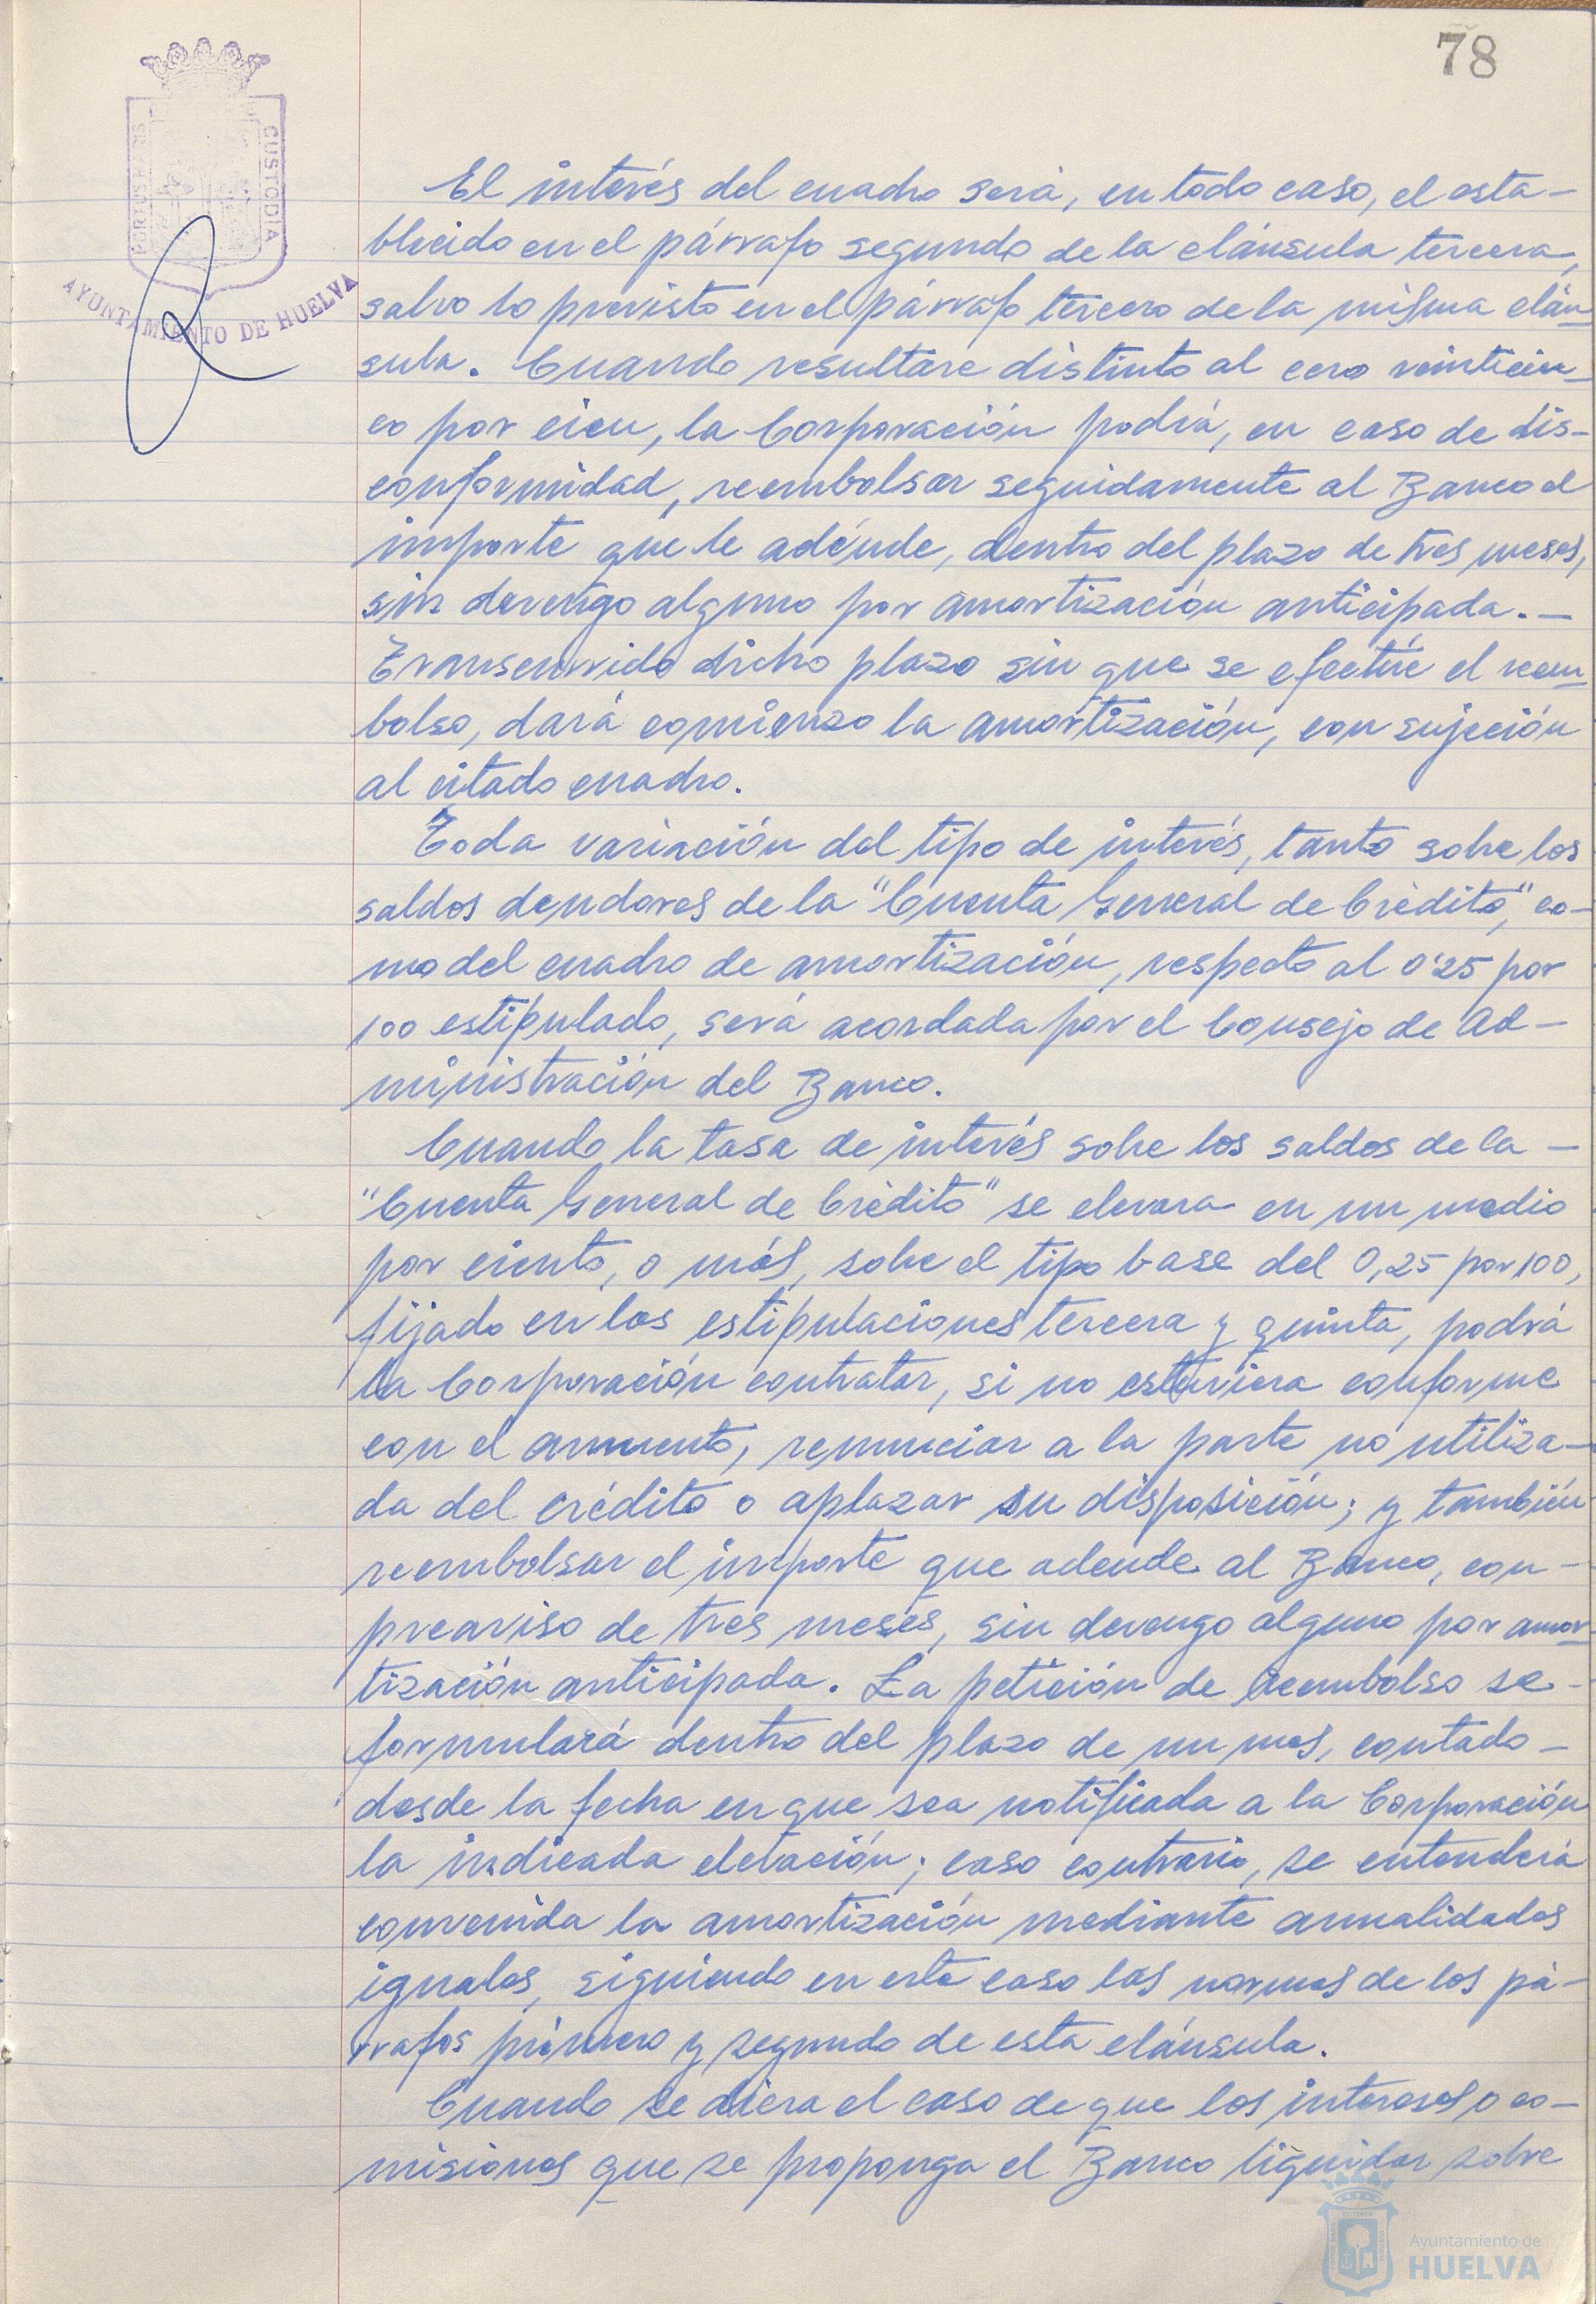 78
PORTUS MARIS
CUSTODIA
AYUNTAMIENTO DE HUELVA
El interés del cuadro será, en todo caso, el esta-
blecido en el párrafo segundo de la cláusula tercera,
salvo lo previsto en el párrafo tercero de la misma cláu-
sula. Cuando resultare distinto al cero veinticin-
co por cien, la Corporación podrá, en caso de dis-
conformidad, reembolsar seguidamente al Banco el
importe que le adeude, dentro del plazo de tres meses,
sin devengo alguno por amortización anticipada.-
Transcurrido dicho plazo sin que se efectúe el reem-
bolso, dará comienzo la amortización, con sujeción
al citado cuadro.
Toda variación del tipo de interés, tanto sobre los
saldos deudores de la "Cuenta General de Crédito", co-
mo del cuadro de amortización, respecto al 0'25 por
100 estipulado, será acordada por el Consejo de Ad-
ministración del Banco.
Cuando la tasa de interés sobre los saldos de la -
"Cuenta General de Crédito" se elevara en un medio
por ciento, o más, sobre el tipo base del 0,25 por 100,
fijado en las estipulaciones tercera y quinta, podrá
la Corporación contratar, si no estuviera conforme
con el aumento, renunciar a la parte no utiliza-
da del crédito o aplazar su disposición; y también
reembolsar el importe que adeude al Banco, con -
preaviso de tres meses, sin devengo alguno por amor-
tización anticipada. La petición de reembolso se -
formulará dentro del plazo de un mes, contado -
desde la fecha en que sea notificada a la Corporación
la indicada elevación; caso contrario, se entenderá
convenida la amortización mediante anualidades
iguales, siguiendo en este caso las normas de los pá-
rrafos primero y segundo de esta cláusula.
Cuando se diera el caso de que los intereses o co-
misiones que se proponga el Banco liquidar sobre
Ayuntamiento de
HUELVA